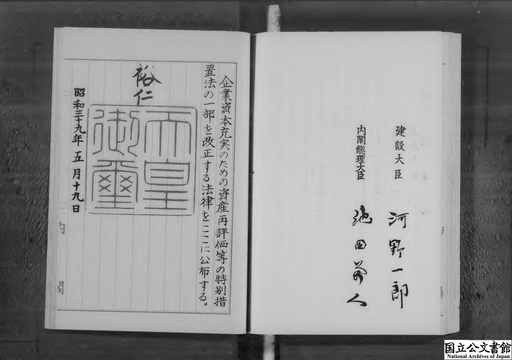 建設大臣
河野一郎
内閣総理大臣
池田勇人
企業資本充実のための資産再評価等の特別措
置法の一部を改正する法律をここに公布する。
裕仁
天皇
御璽
昭和三十九年五月十九日
国立公文書館
National Archives of Japan